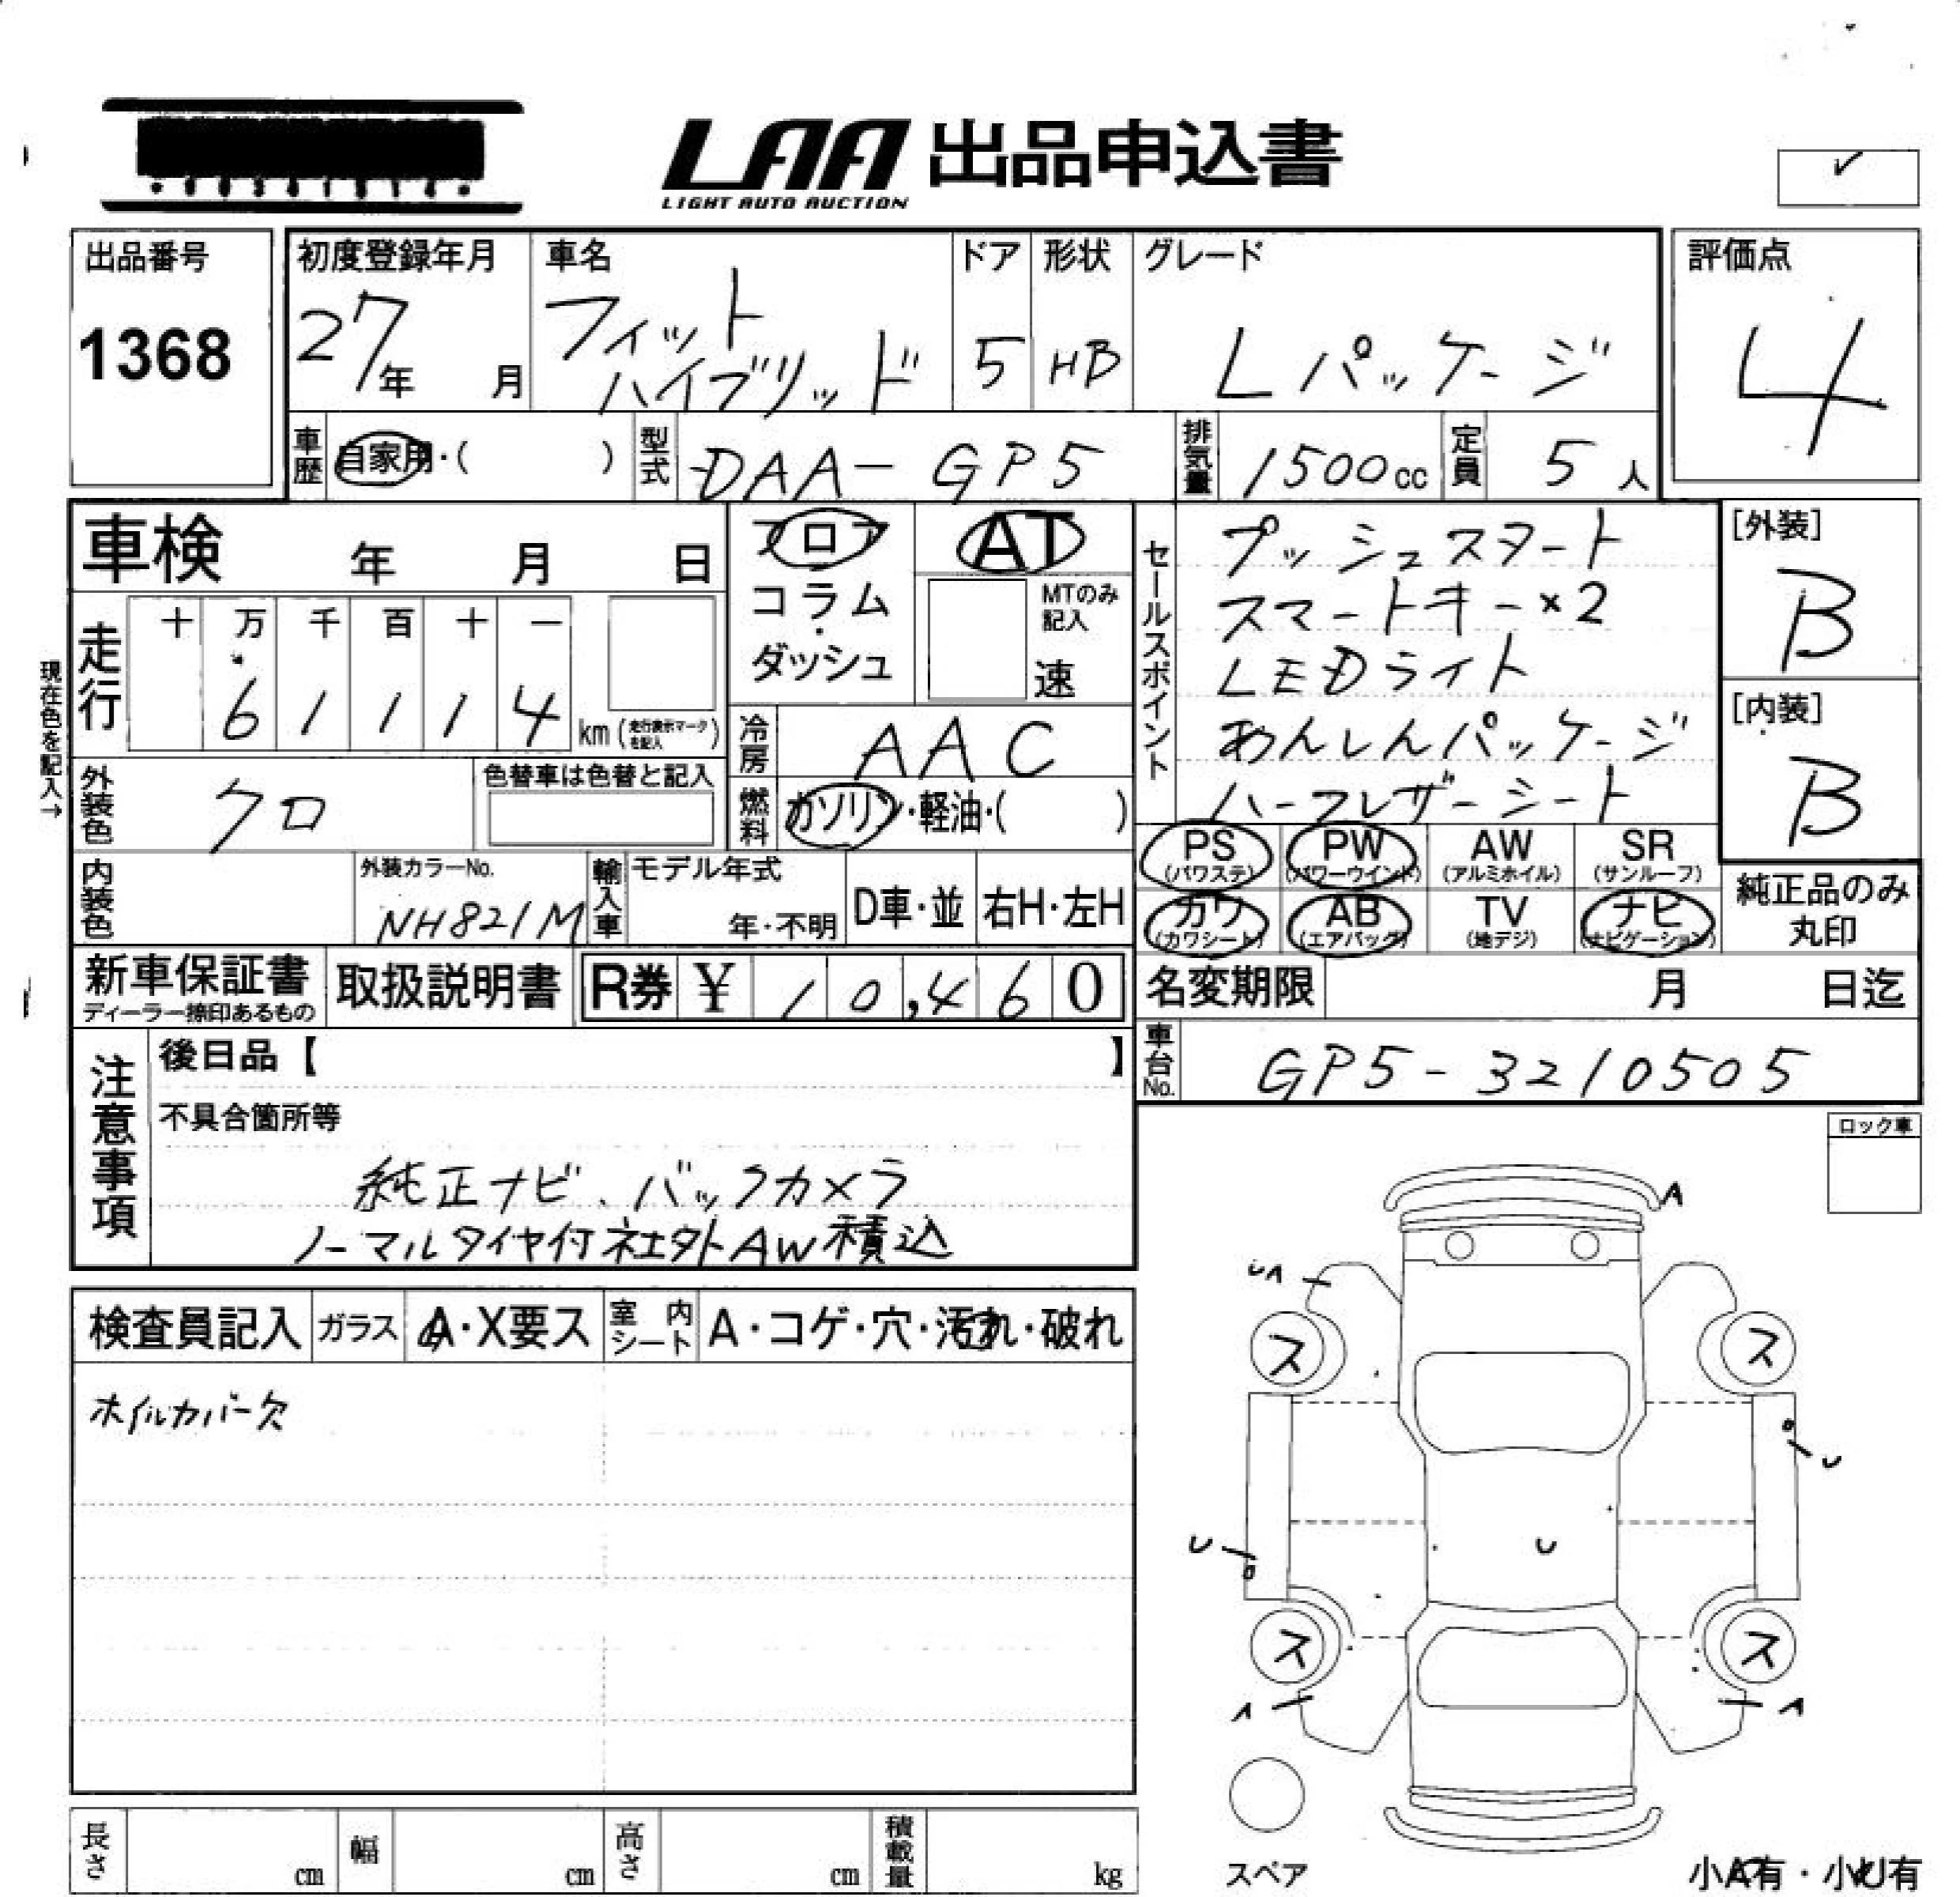 LAA 出品申込書
LIGHT AUTO AUCTION
出品番号
1368
初度登録年月
27年 月
車名
フィット
ハイブリッド
ドア
5
形状
HB
グレード
Lパッケージ
評価点
4
車歴 自家用・( )
型式 DAA-GP5
排気量 1500cc
定員 5人
車検 年 月 日
フロア
コラム
・
ダッシュ
AT
MTのみ
記入
速
セールスポイント
プッシュスタート
スマートキー×2
LEDライト
あんしんパッケージ
ハーフレザーシート
[外装]
B
[内装]
B
現在色を記入→
走行
十 万 千 百 十 一
6 1 1 1 4 km (走行表示マークを記入)
冷房 AAC
燃料 ガソリン・軽油・( )
外装色 クロ
色替車は色替と記入
内装色
外装カラーNo.
NH821M
輸入車
モデル年式
年・不明
D車・並
右H・左H
PS (パワステ)
PW (パワーウインド)
AW (アルミホイル)
SR (サンルーフ)
カワ (カワシート)
AB (エアバッグ)
TV (地デジ)
ナビ (ナビゲーション)
純正品のみ
丸印
新車保証書
ディーラー捺印あるもの
取扱説明書
R券 ¥ 10,460
名変期限 月 日迄
車台No. GP5-3210505
注意事項
後日品【 】
不具合箇所等
純正ナビ、バックカメラ
ノーマルタイヤ付社外AW積込
ロック車
検査員記入
ガラス A・X要ス
室内シート A・コゲ・穴・汚れ・破れ
ホイルカバー欠
A
UA
ス ス
U
U
U
ス ス
A A
スペア
長さ cm
幅 cm
高さ cm
積載量 kg
小A有・小U有